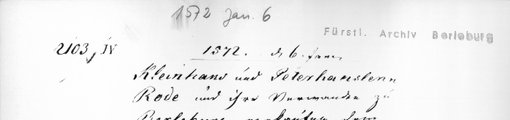 1572 Jan. 6
Fürstl. Archiv Berleburg
2103, IV
1572. d. 6. Jan.
Kleinhans und Peterhans
Rode und ihre Verwandte zu
Berleburg verkaufen dem